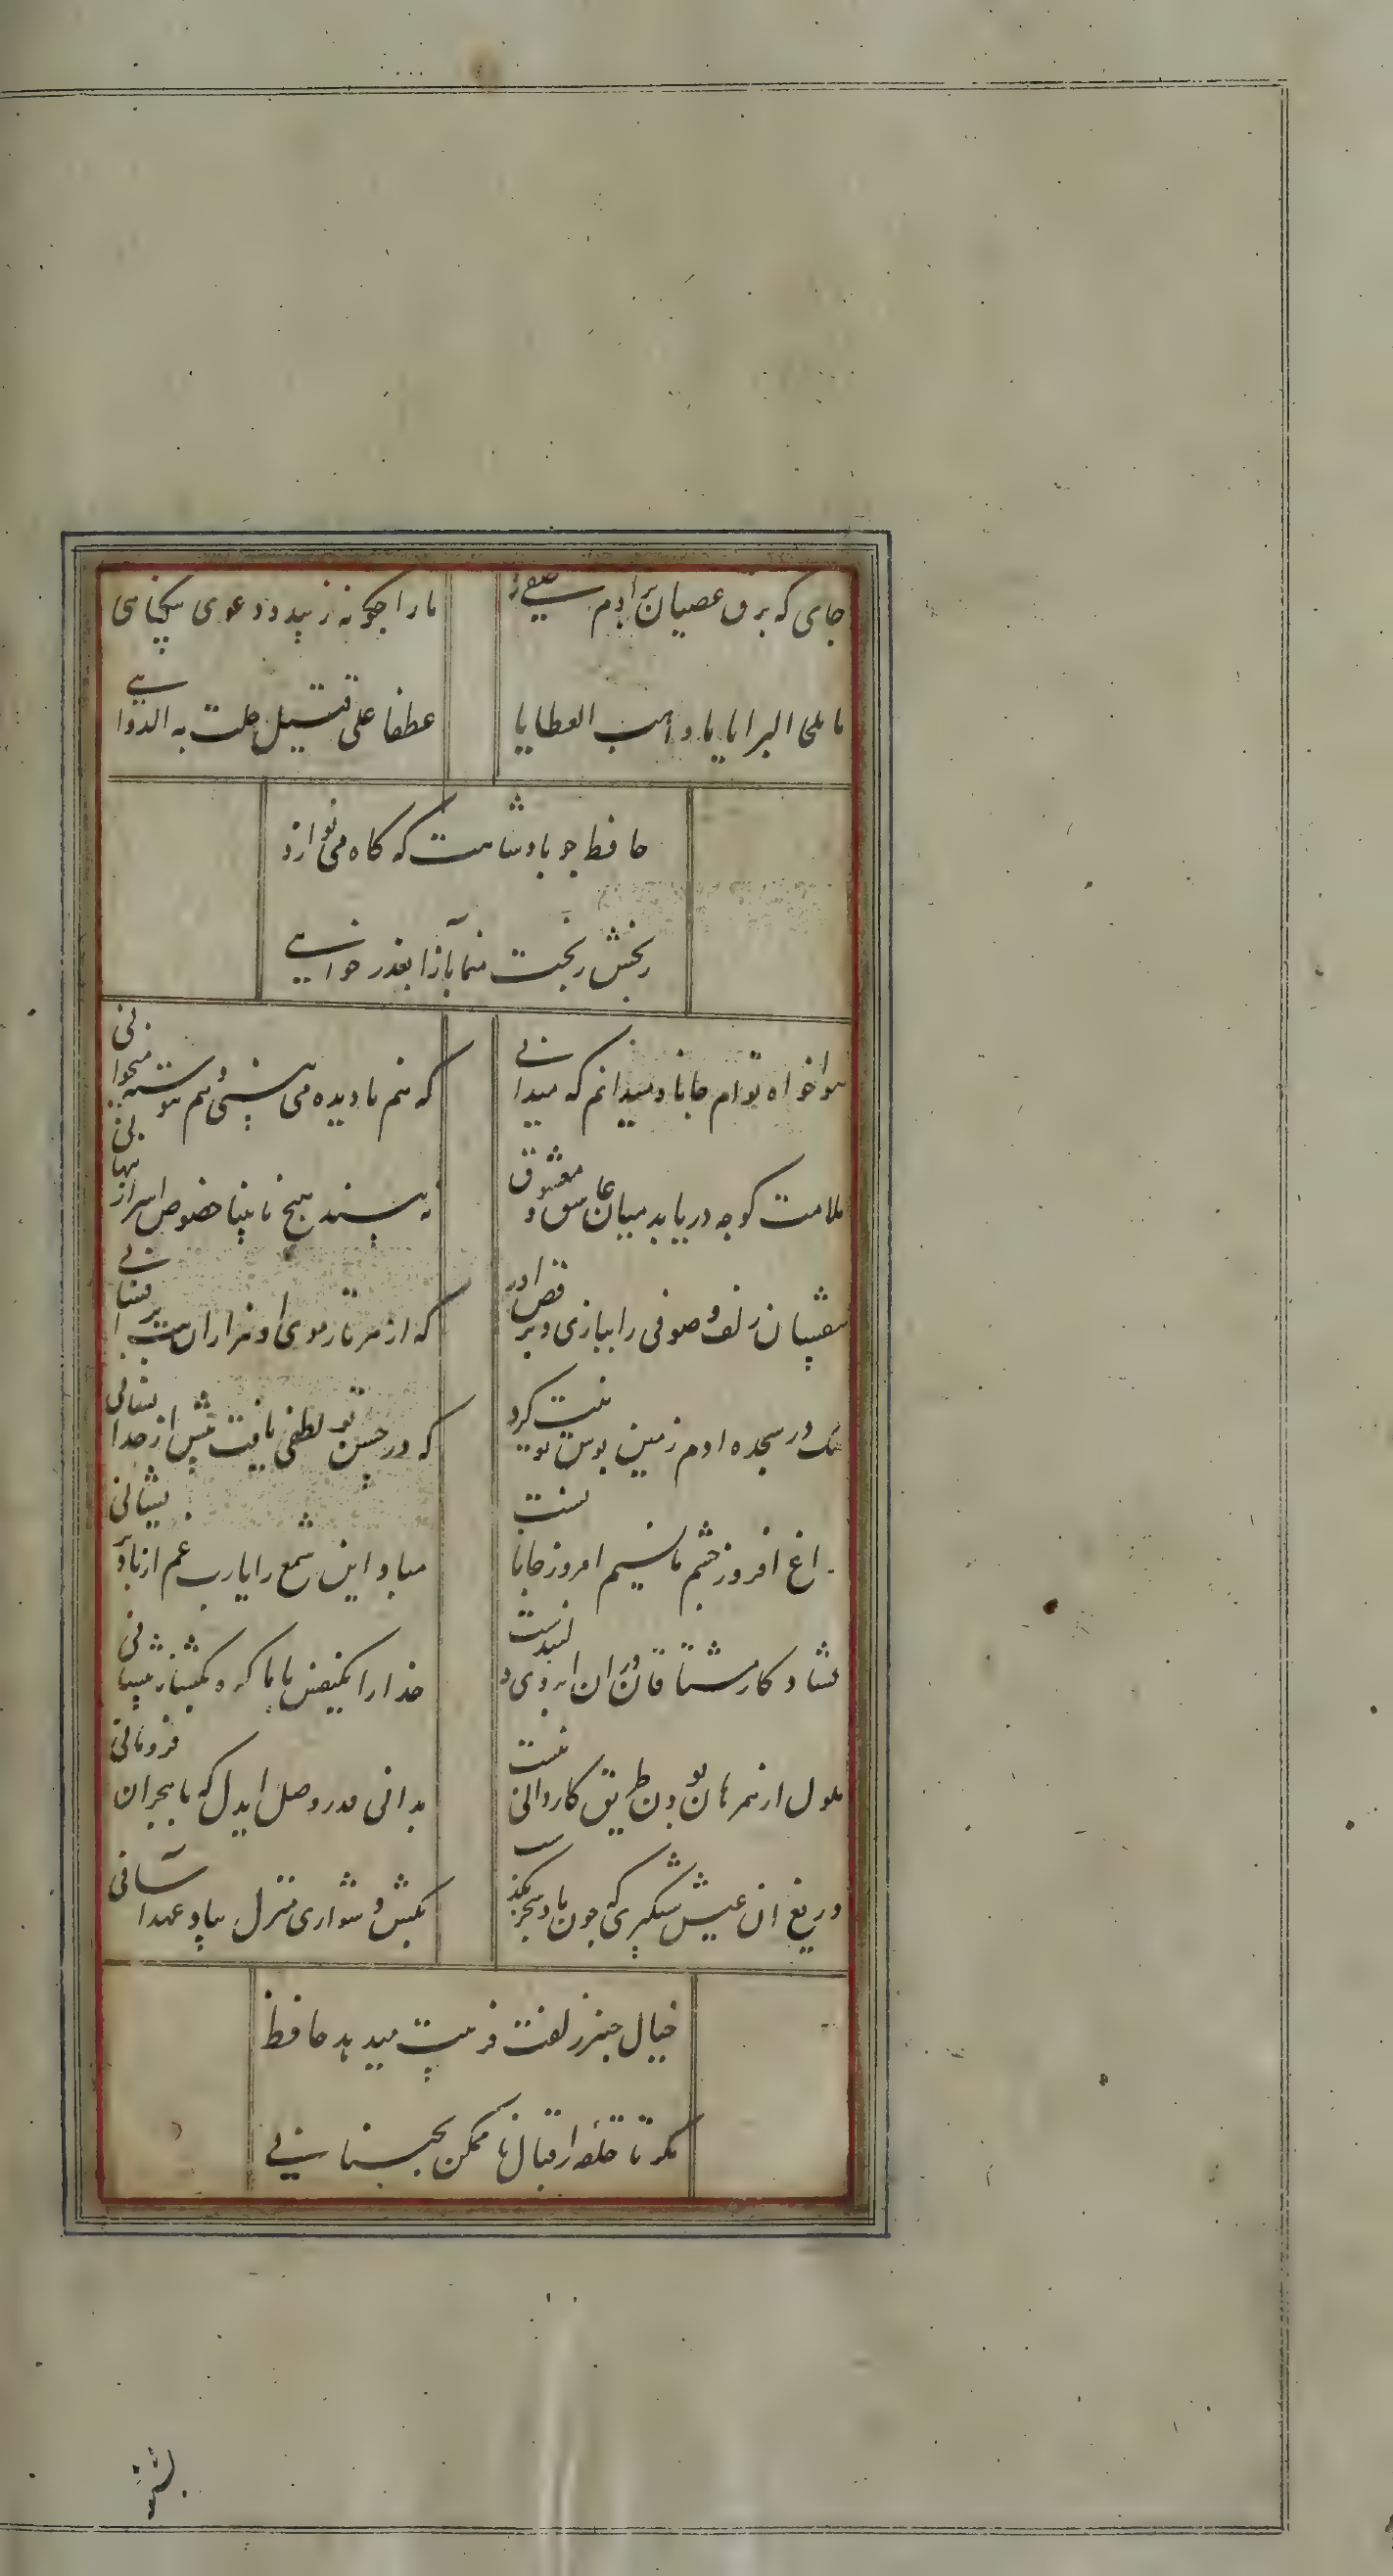 جای که برق عصیان بر ادم صفی زد
مارا چکونه زیبد دعوی بیکناهی
یا ملجا البرایا یا واهب العطایا
عطفا علی قتیل حلت به الدواهی
حافظ چو بادشاهت که کاه می نوازد
رنجش ز بخت منما بازا بعذر خواهی
هواخواه توام جانا و میدانم که میدانی
که هم نادیده می بینی و هم ننوشته میخوانی
ملامت کو چه دریابد میان عاشق و معشوق
نه بیند هیچ نابینا خصوص اسرار نهانی
بیفشان زلف و صوفی را ببازی و برقص اور
که از هر تار موی او هزاران بت بر افشانی
ملک در سجده ادم زمین بوس تو نیت کرد
که در حسن تو لطفی یافت بیش از حد انسانی
چراغ افروز چشم ما نسیم امروز جانانست
مباد این شمع را یارب غم از باد پریشانی
کشاد کار مشتاقان در ان ابروی دلبندست
خدا را یکنفس با ما کره بکشا ز پیشانی
ملول از همرهان بودن طریق کاردانی نیست
بدانی قدر وصل ایدل که با هجران فرومانی
دریغ ان عیش شبکیری که چون باد سحر بکذشت
بکش دشواری منزل بیاد عهد اسانی
خیال چنبر زلفت فریبت میدهد حافظ
نکر تا حلقه اقبال ناممکن بجنبانی